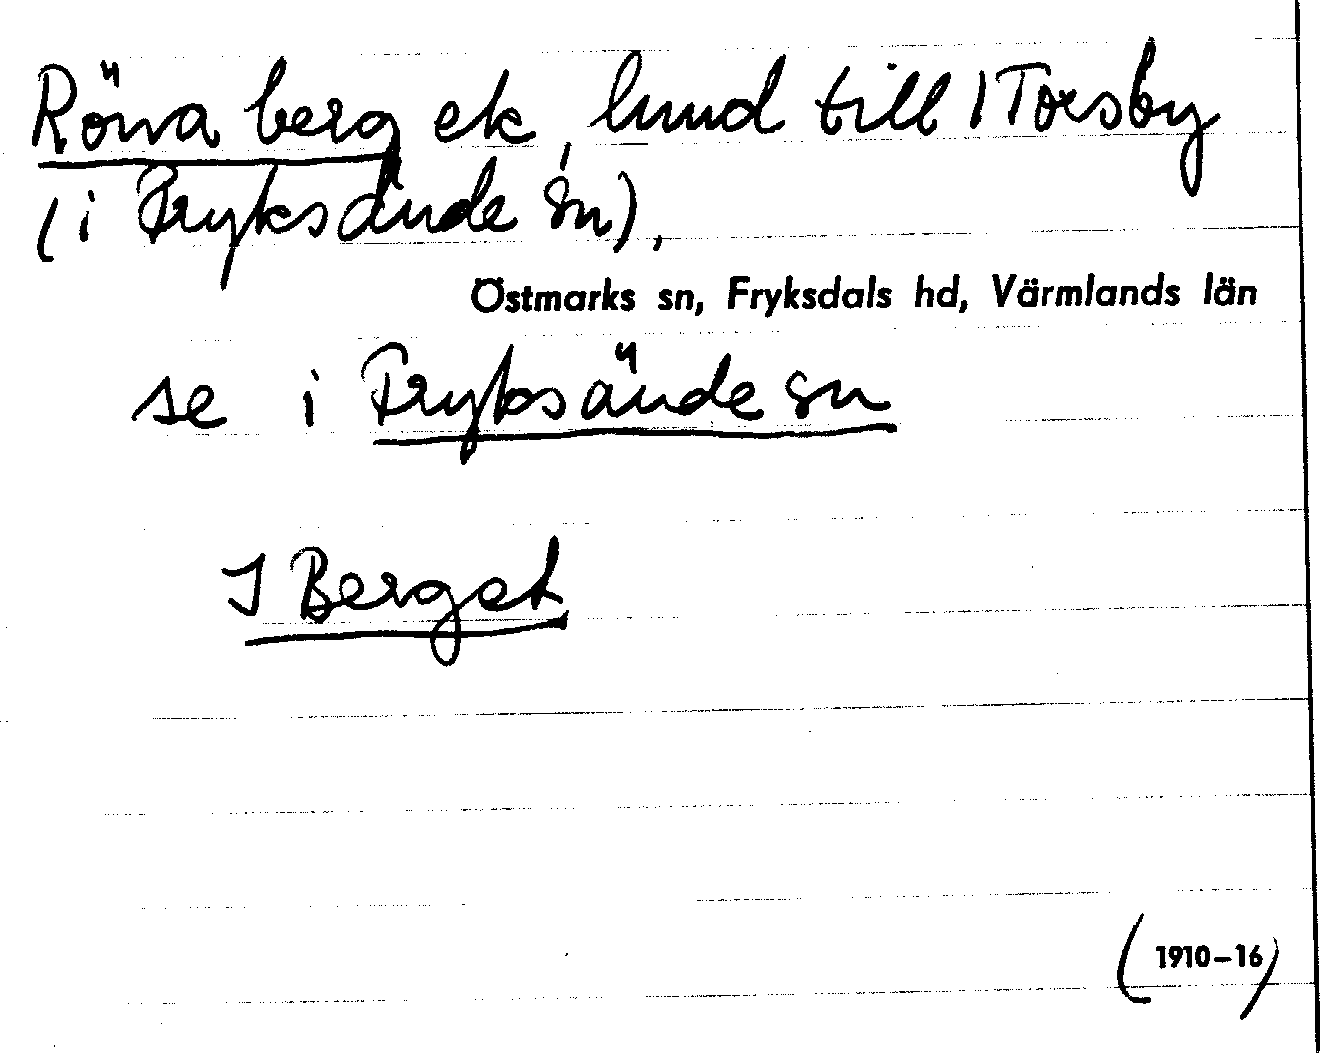 Rönnaberg ek, hund till 1 Torsby
(i Fryksände sn),
Östmarks sn, Fryksdals hd, Värmlands län
se i Fryksände sn
1 Berget
(1910-16)